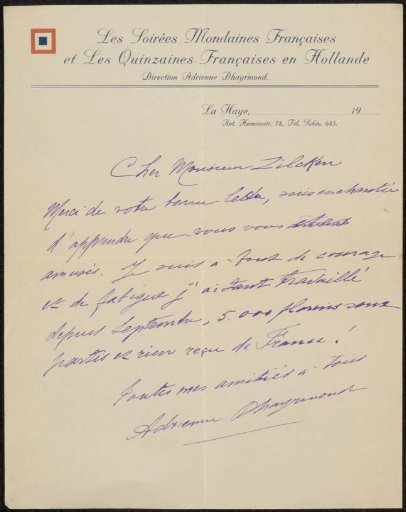 Les Soirées Mondaines Françaises
et Les Quinzaines Françaises en Hollande
Direction Adrienne Dhayrmond.
La Haye, 19
Ant. Heinsiusstr. 78, Tél. Schév. 645.
Cher Monsieur Zilcken
Merci de votre bonne lettre, suis enchantée
d'apprendre que vous vous
amusés. Je suis à bout de courage
et de fatigue j'ai tant travaillé
depuis Septembre, 5.000 florens sont
partis et rien reçu de France!
toutes mes amitiés à tous
Adrienne Dhayrmond